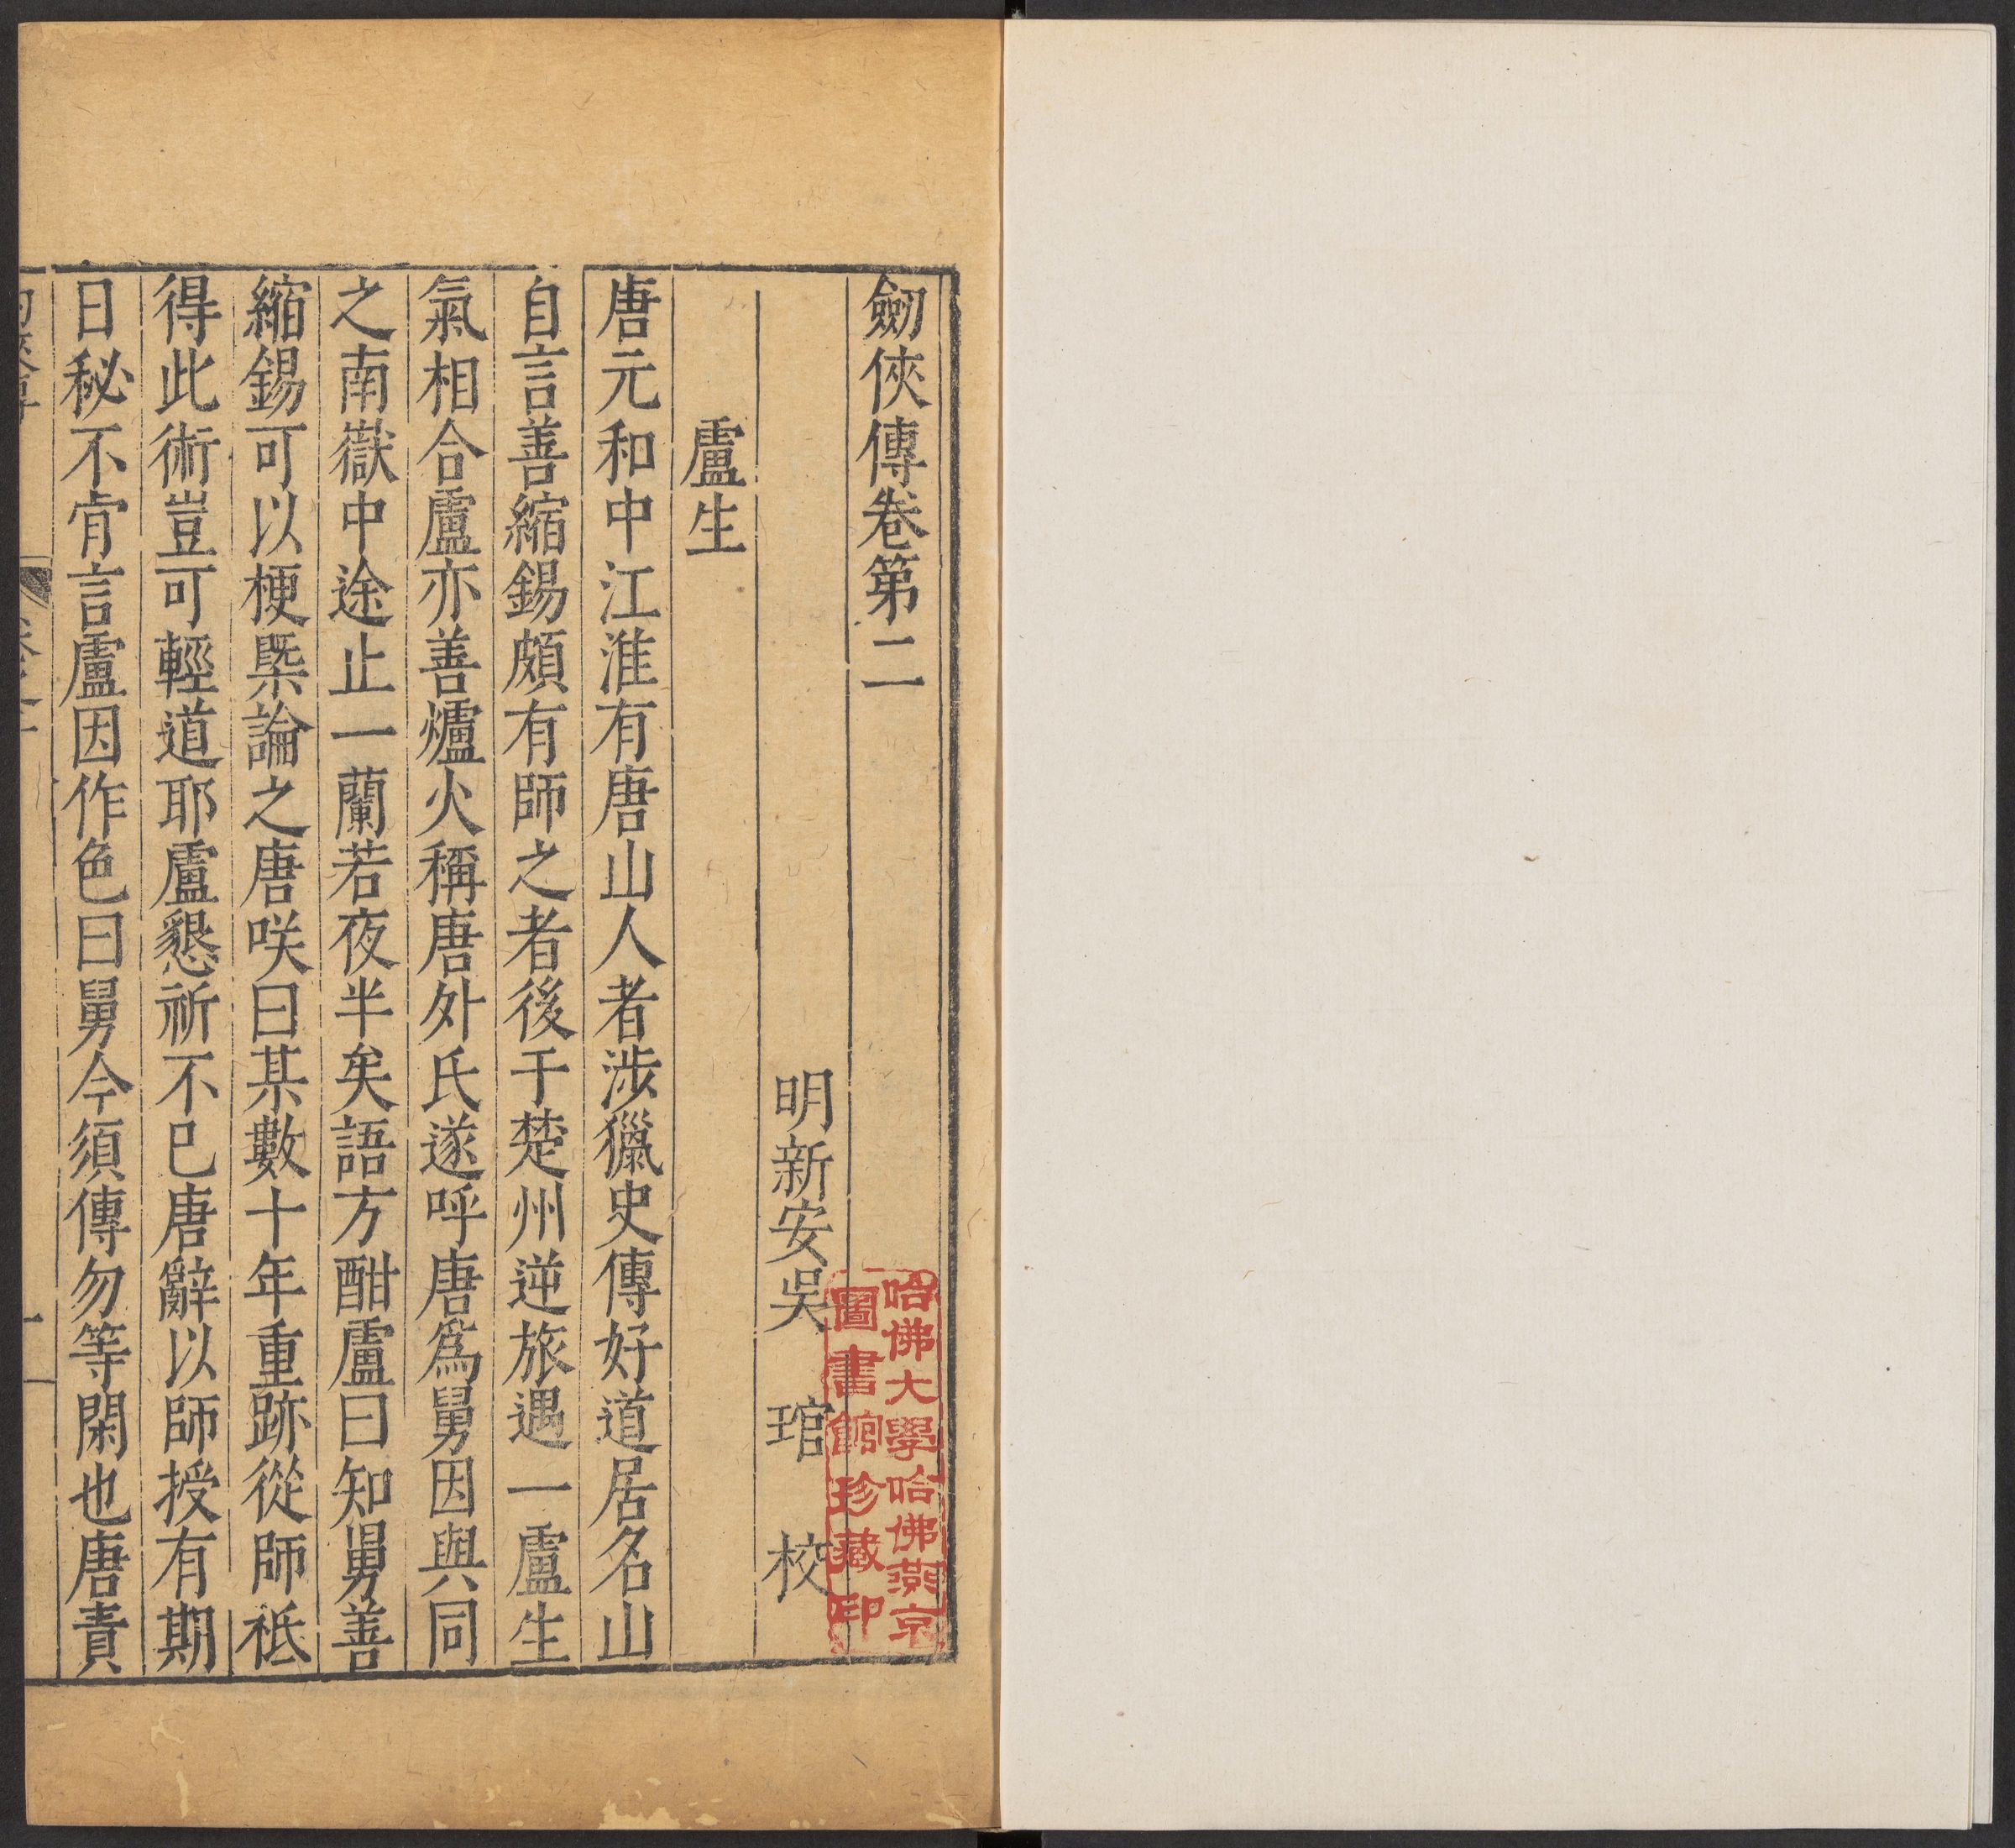 劒俠傳卷第二
明新安吳　琯　校
盧生
唐元和中江淮有唐山人者涉獵史傳好道居名山
自言善縮錫頗有師之者後于楚州逆旅遇一盧生
氣相合盧亦善爐火稱唐外氏遂呼唐爲舅因與同
之南嶽中途止一蘭若夜半矣語方酣盧曰知舅善
縮錫可以梗槩論之唐咲曰某數十年重跡從師祗
得此術豈可輕道耶盧懇祈不已唐辭以師授有期
日秘不肯言盧因作色曰舅今須傳勿等閑也唐責
哈佛大學哈佛燕京
圖書館珍藏印